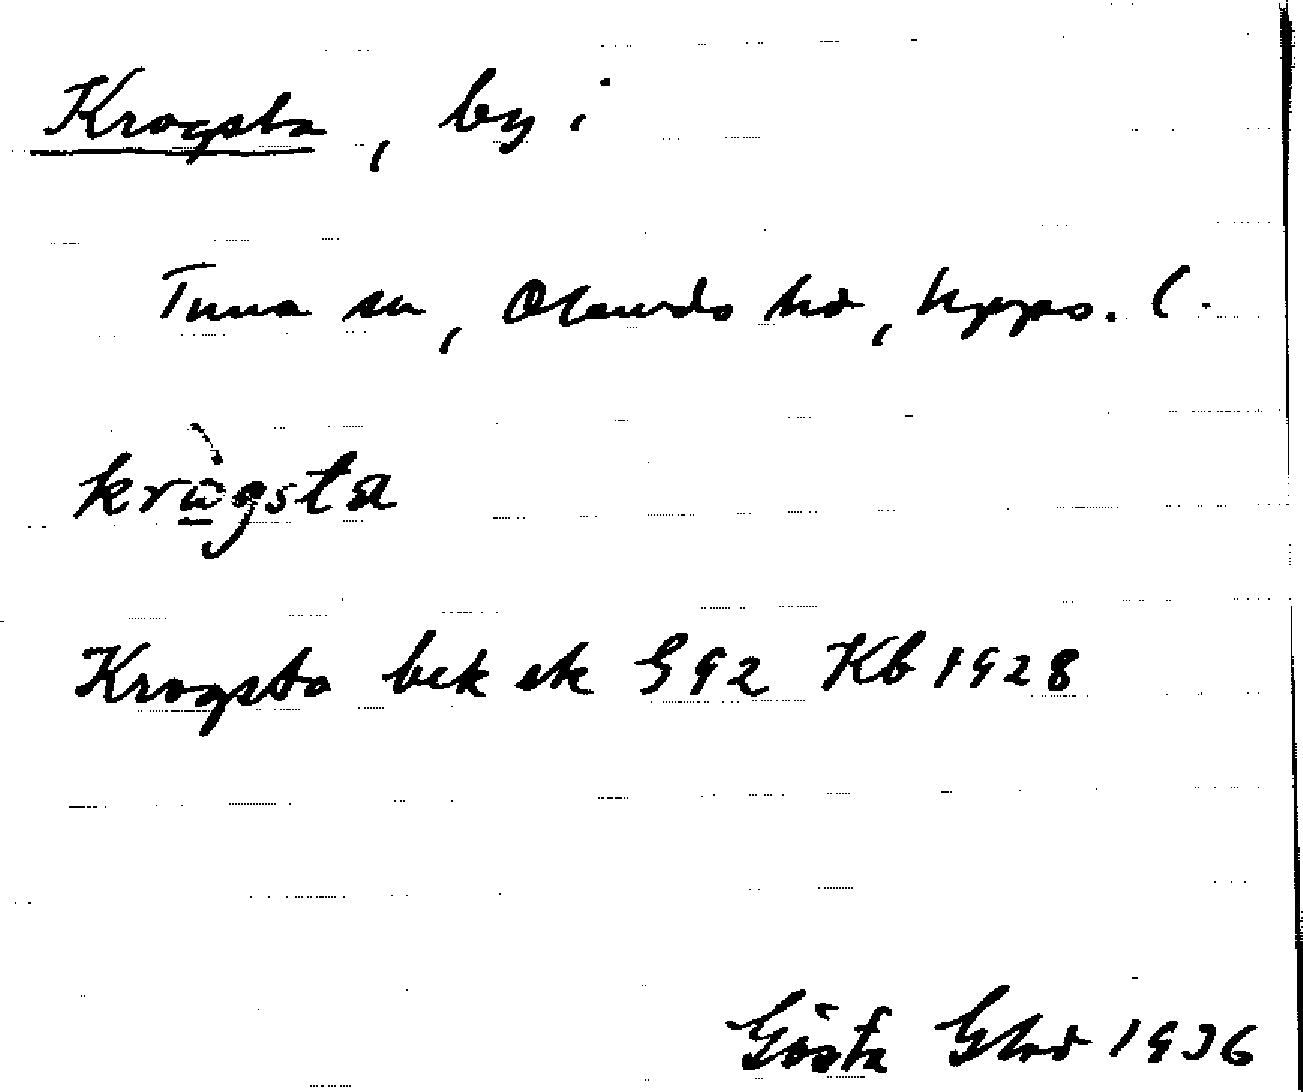 Krogsta, by i
Tuna sn, Olands hd, Upps. l.
krògsta
Krogsta bek ek G92 Kb 1928
Gösta 1936